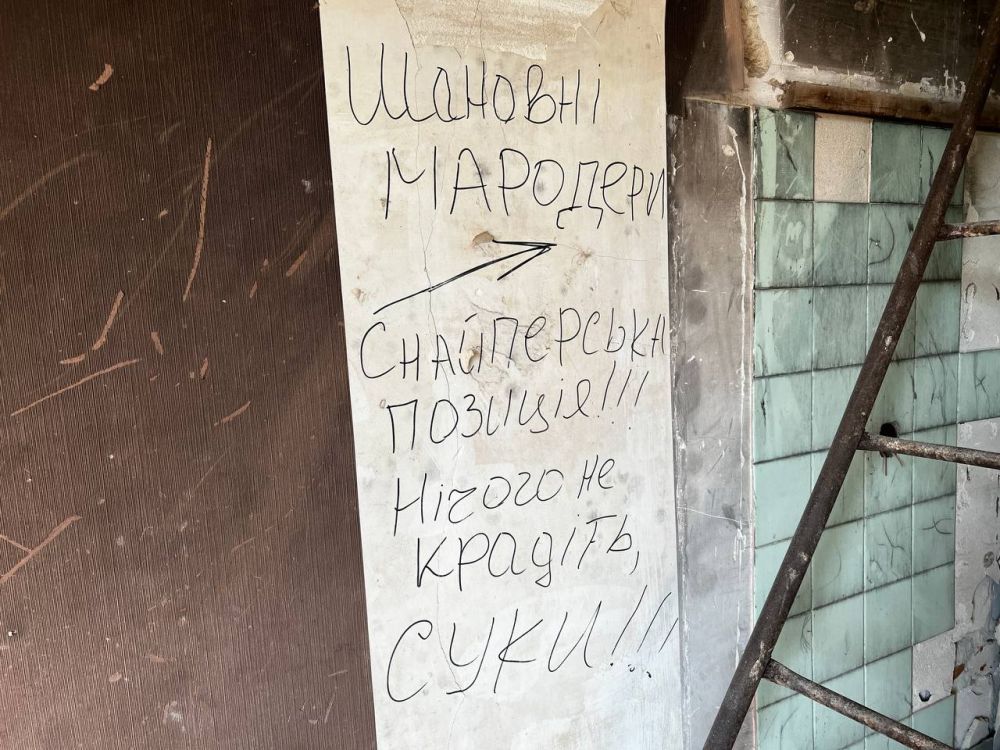 Шановні
МАРОДЕРИ
Снайперська
позиція!!!
Нічого не
крадіть,
СУКИ!!!